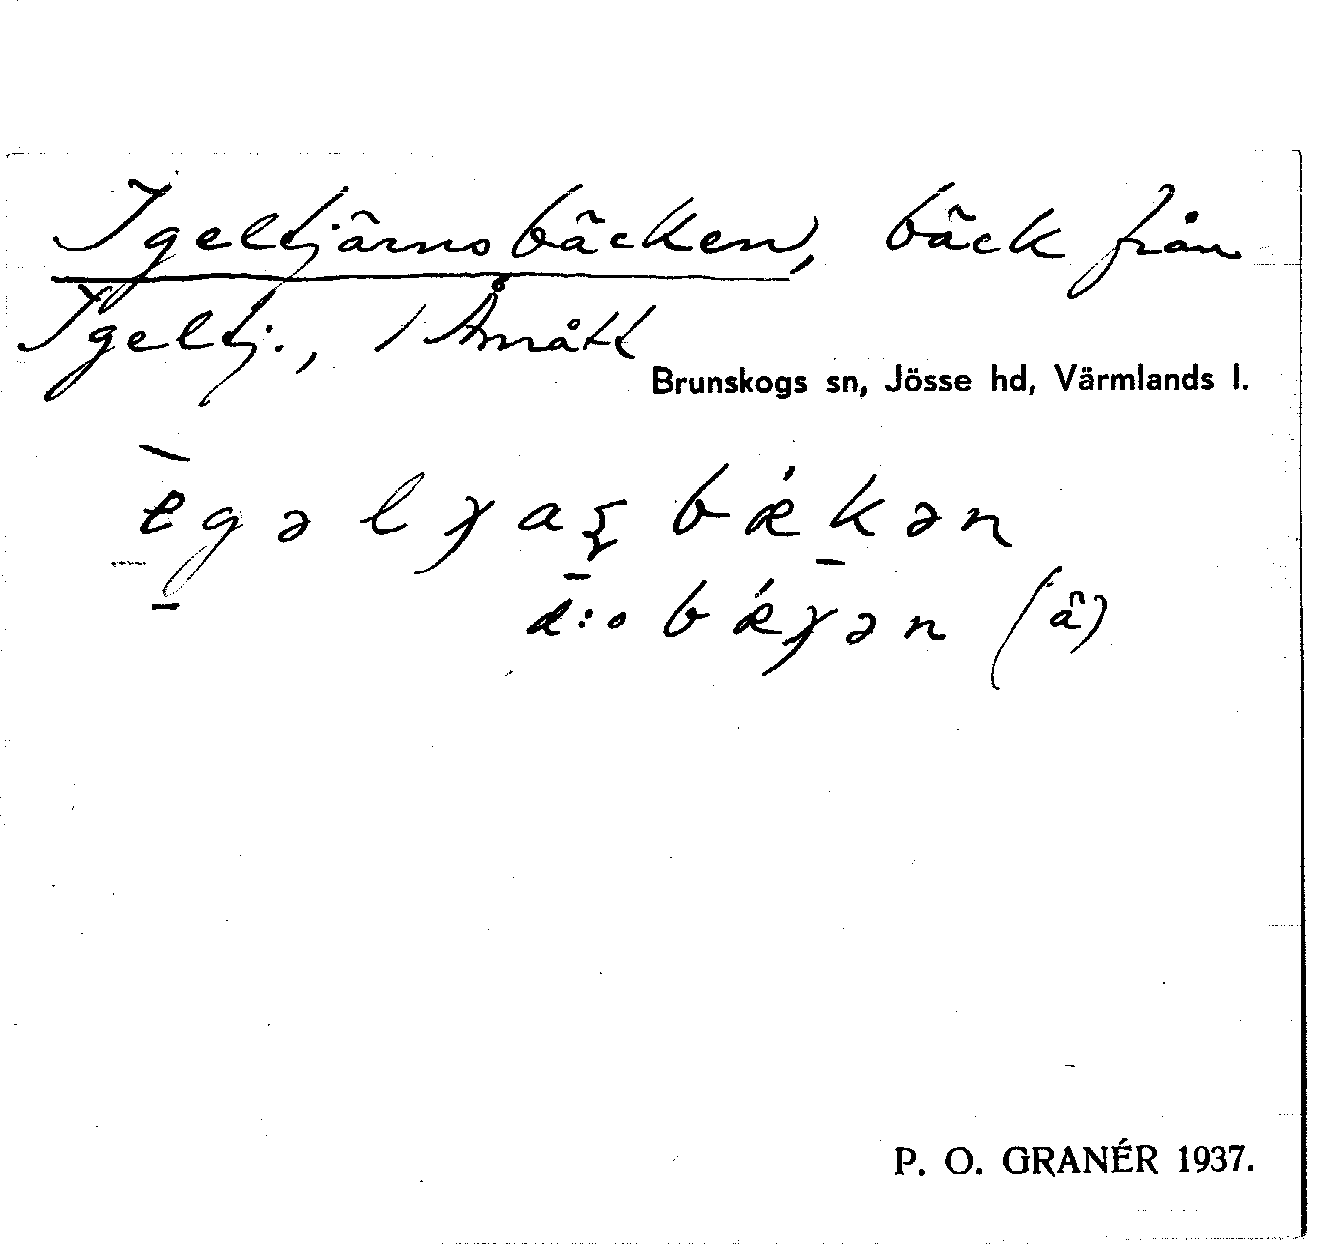 Igeltjärnsbäcken, bäck från
Igeltj., / Åmått
Brunskogs sn, Jösse hd, Värmlands l.
bǽkən
(â)
P. O. GRANÉR 1937.